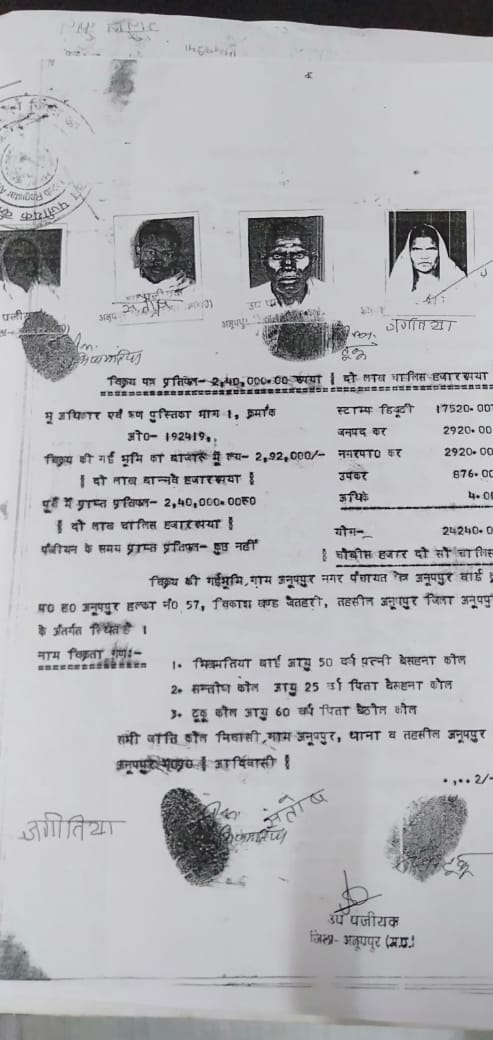 उप पं
अनूपपुर
जगीतिया
विक्रय पत्र प्रतिफल- 2,40,000.00 रूपया § दो लाख चालिस हजार रूपया
भू अधिकार एवं ऋण पुस्तिका भाग 1, क्रमांक
ओ0- 192419,
विक्रय की गई भूमि का बाजारू मूल्य- 2,92,000/-
§ दो लाख बान्नवे हजार रूपया §
पूर्व में प्राप्त प्रतिफल- 2,40,000.00रू0
§ दो लाख चालिस हजार रूपया §
पंजीयन के समय प्राप्त प्रतिफल- कुछ नहीं
स्टाम्प डियूटी 17520.00
जनपद कर 2920.00
नगरपा0 कर 2920.00
उपकर 876.00
अधि0 4.00
योग- 24240.0
§ चौबीस हजार दो सौ चालिस
विक्रय की गई भूमि, ग्राम अनूपपुर नगर पंचायत क्षेत्र अनूपपुर वार्ड
प0 ह0 अनूपपुर हल्का नं0 57, विकाश खण्ड जैतहरी, तहसील अनूपपुर जिला अनूपपु
के अंतर्गत स्थित है ।
नाम विक्रेता गण:-
1. भिखमतिया बाई आयु 50 वर्ष पत्नी बेसहना कोल
2. सन्तोष कोल आयु 25 वर्ष पिता बेसहना कोल
3. टूकू कोल आयु 60 वर्ष पिता बैठोल कोल
सभी जाति कोल निवासी, ग्राम अनूपपुर, थाना व तहसील अनूपपुर
अनूपपुर म0प्र0 § आदिवासी §
....2/-
जगीतिया
संतोष
उप पंजीयक
जिला- अनूपपुर (म.प्र.)